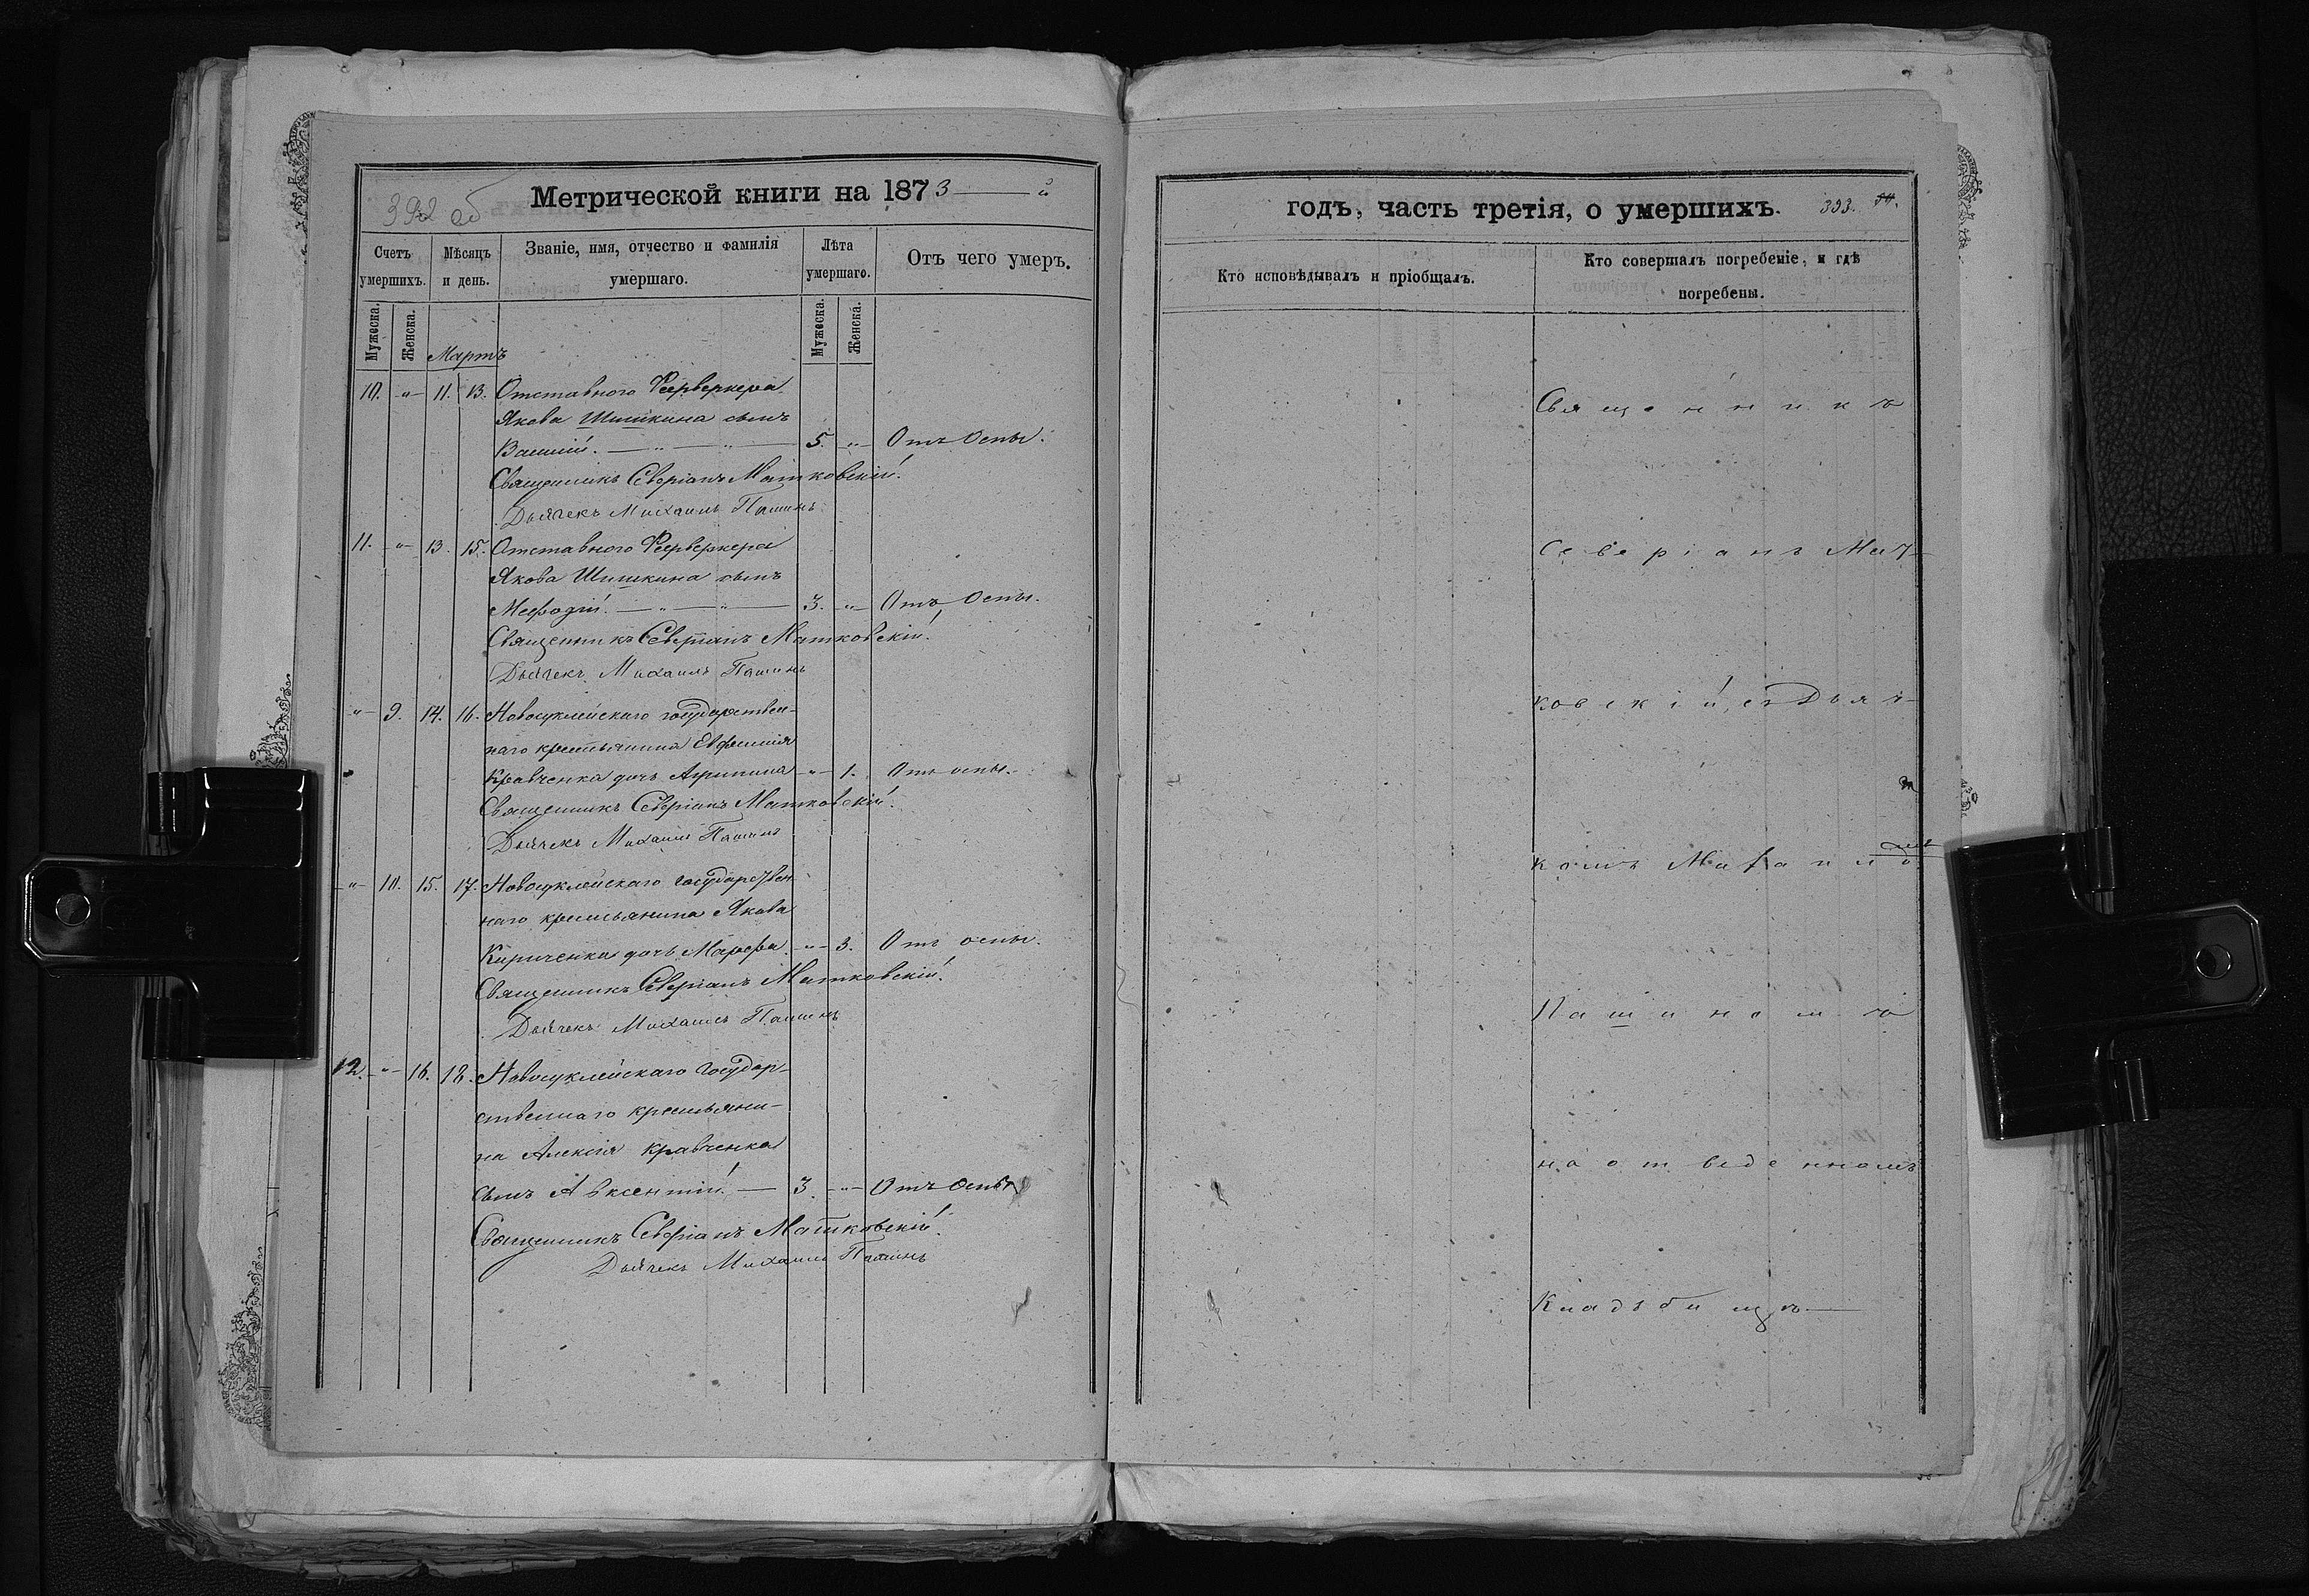 392 об
Метрической книги на 1873 — го
Счетъ умершихъ.
Мѣсяцъ и день.
Званіе, имя, отчество и фамилія умершаго.
Лѣта умершаго.
Отъ чего умеръ.
Мужеска.
Женска.
Мартъ
Мужеска.
Женска.
10. „ 11. 13. Отставного Феерверкера
Якова Шишкина сынъ
Василій. — „ — „ — 5. „ Отъ оспы.
Священникъ Северіанъ Матковскій.
Дьячекъ Михаилъ Пашинъ
11. „ 13. 15. Отставного Феерверкера
Якова Шишкина сынъ
Мефодій. — „ — „ — 3. „ Отъ оспы.
Священникъ Северіанъ Матковскій.
Дьячекъ Михаилъ Пашинъ
„ 9. 14. 16. Новоуклейскаго государствен-
наго крестьянина Евфимія
Кравченка дочь Агрипина „ 1. Отъ оспы.
Священникъ Северіанъ Матковскій.
Дьячекъ Михаилъ Пашинъ
„ 10. 15. 17. Новоуклейскаго государствен
наго крестьянина Якова
Кириченка дочь Марфа. „ 3. Отъ оспы.
Священникъ Северіанъ Матковскій.
Дьячекъ Михаилъ Пашинъ
12. „ 16. 18. Новоуклейскаго государ-
ственнаго крестьяни-
на Алексія Кравченка
сынъ Авксентій. — 3. „ Отъ оспы
Священникъ Северіанъ Матковскій.
Дьячекъ Михаилъ Пашинъ
годъ, часть третія, о умершихъ. 393.
Кто исповѣдывалъ и пріобщалъ.
Кто совершалъ погребеніе, и гдѣ погребены.
Священникъ
Северіанъ Мат-
ковскій, съ Дьяч-
комъ Михаило
Пашиномъ
на отведенномъ
Кладбищѣ. —